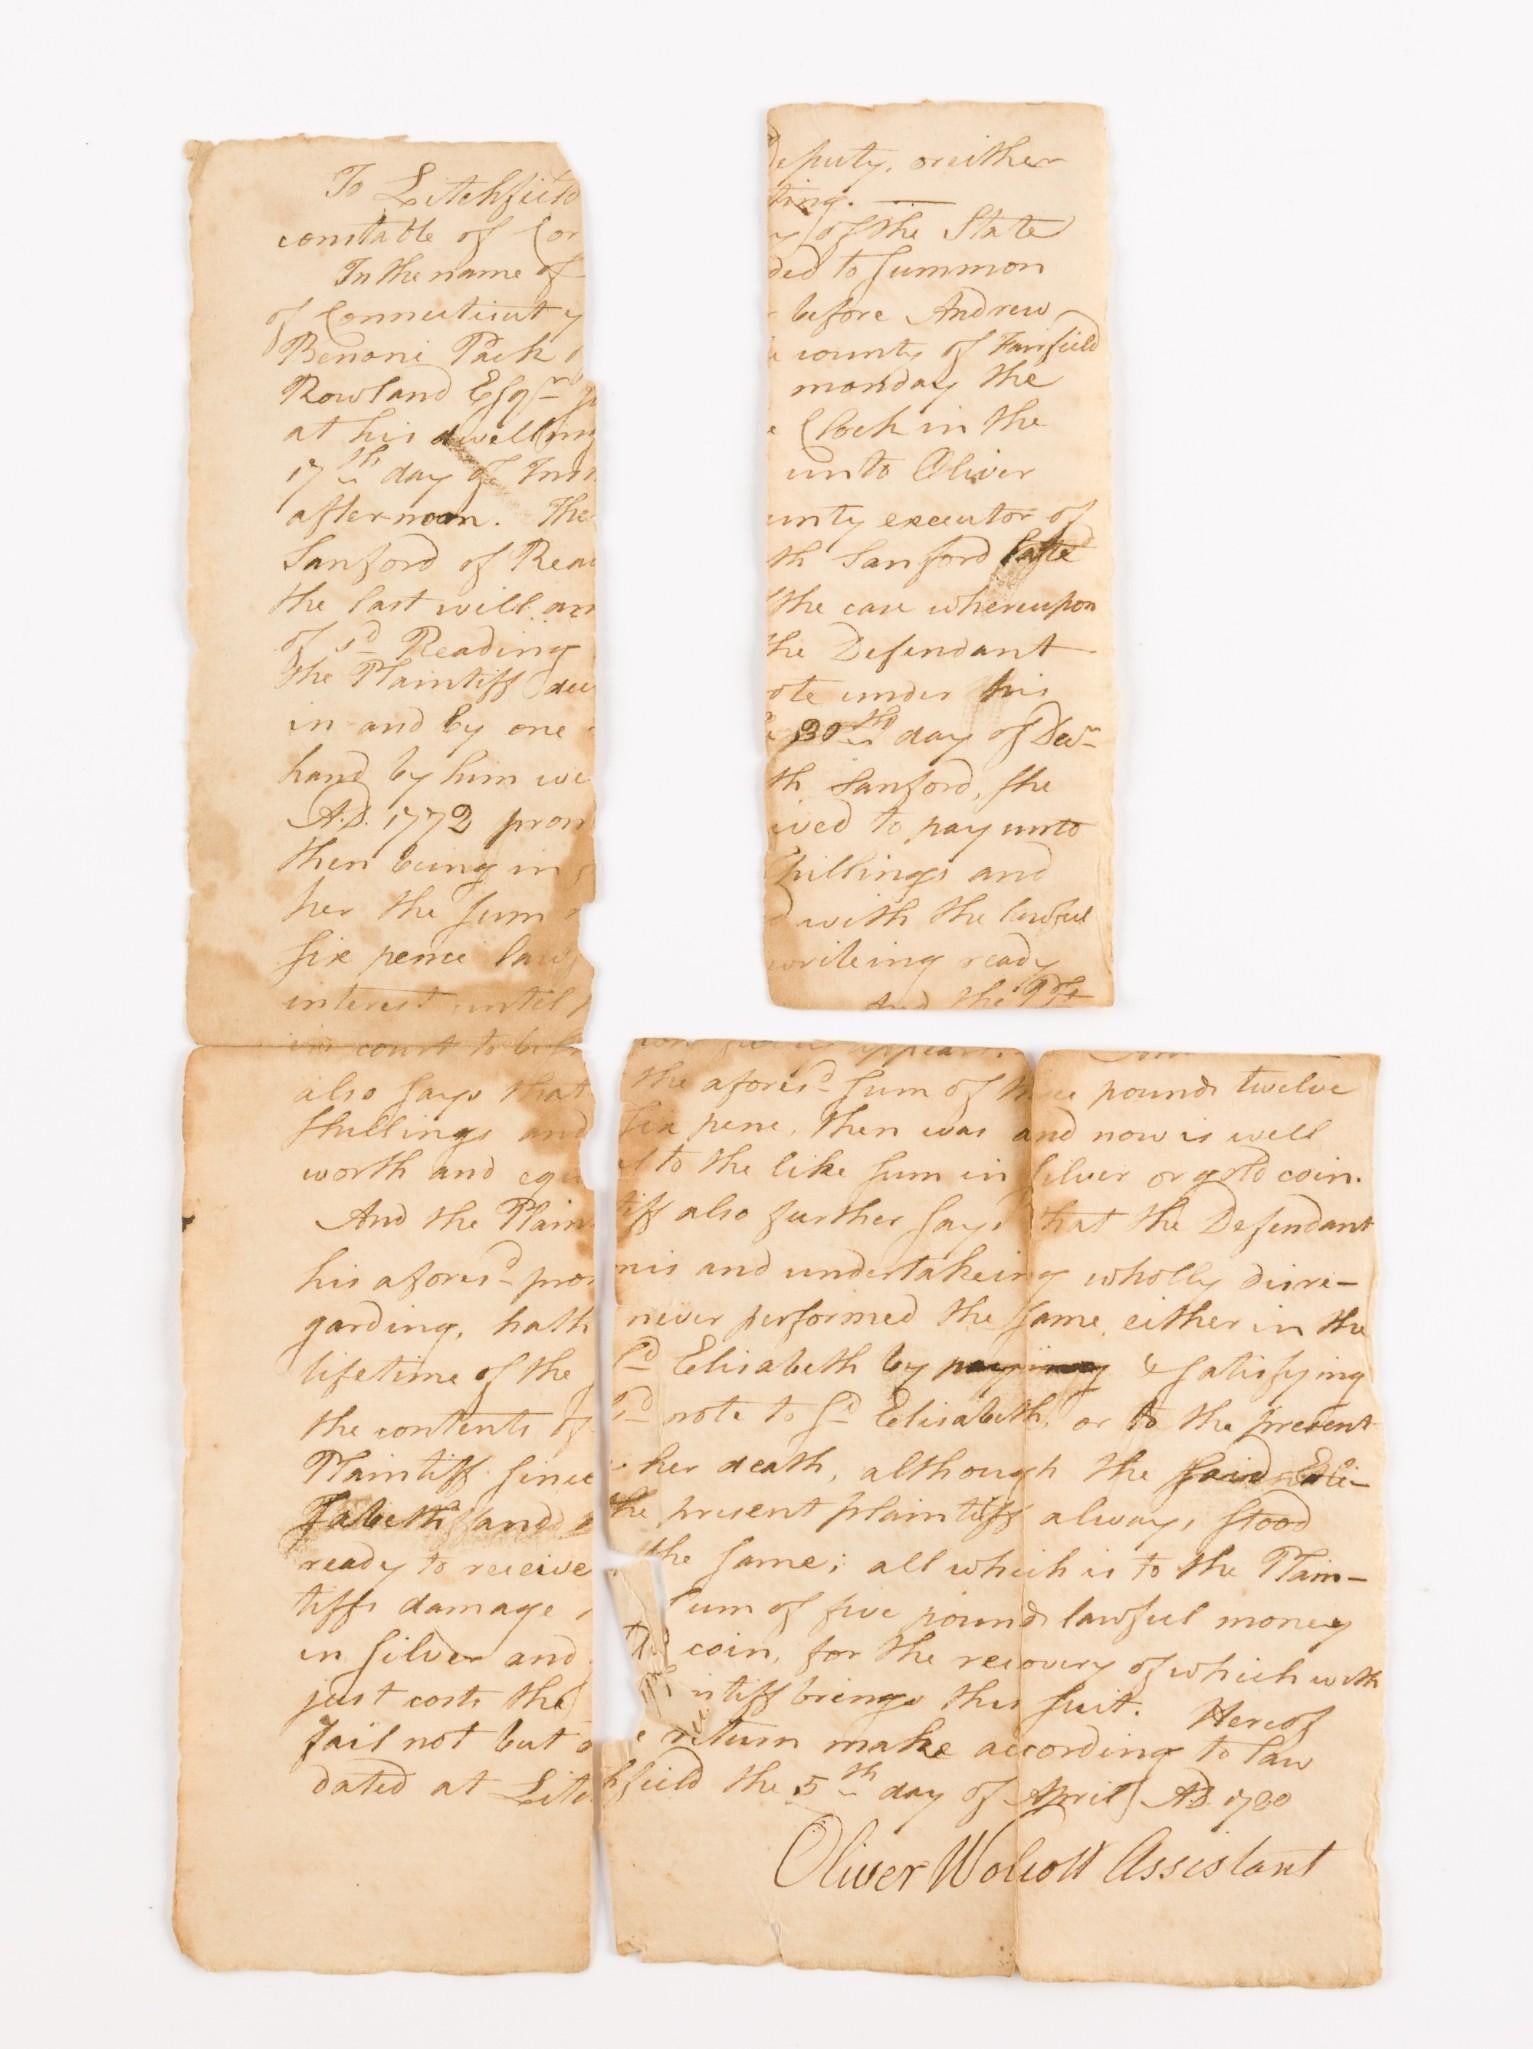 To Litchfield
constable of Cor
In the name of
of Connecticut y
Benoni Pack
Rowland Esqr
at his dwelling
17th day of Inst
afternoon. The
Sanford of Rea
the last will an
of sd Reading
the Plaintiff dec
in and by one
hand by him we
A.D. 1772 prom
then being in
her the sum
six pence law
interest until
court to be
deputy, or either
ting.
y of the State
ded to summon
before Andrew
county of Fairfield
monday the
Clock in the
unto Oliver
unty executor of
th Sanford late
the case whereupon
the Defendant
ote under his
30th day of Decr
th Sanford, she
ived to pay unto
shillings and
d with the lawful
writeing ready
And the Plt
appear.
also says that the aforesd sum of three pounds twelve
shillings and six penc, then was and now is well
worth and equal to the like sum in silver or gold coin.
And the Plaintiff also further says that the Defendant
his aforesd promis and undertakeing wholly disre-
garding, hath never performed the same either in the
lifetime of the sd Elisabeth by paying & satisfying
the contents of sd note to sd Elisabeth, or to the present
Plaintiff since her death, although the said Eli-
sabeth and the present plaintiff always stood
ready to receive the same; all which is to the Plain-
tiffs damage sum of five pounds lawful money
in silver and coin, for the recovery of which with
just costs the ntiff brings this suit. Hereof
fail not but due return make according to law
dated at Litchfield the 5th day of April A.D. 1780
Oliver Wolcott Assistant